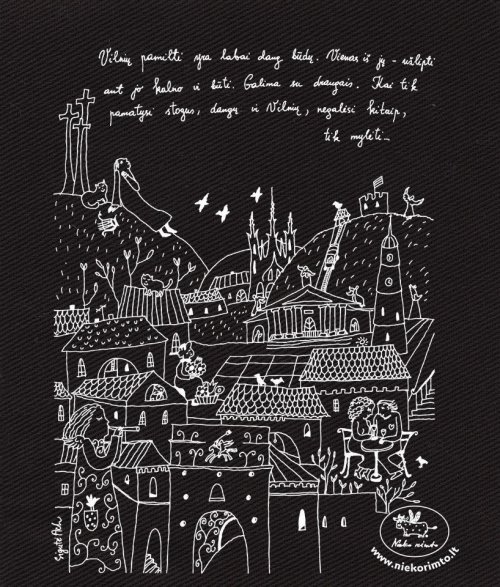 Vilnių pamilti yra labai daug būdų. Vienas iš jų - užlipti
ant jo kalno ir būti. Galima su draugais. Kai tik
pamatysi stogus, dangų ir Vilnių, negalėsi kitaip,
tik mylėti...
Sigutė Ach
Nieko rimto
www.niekorimto.lt